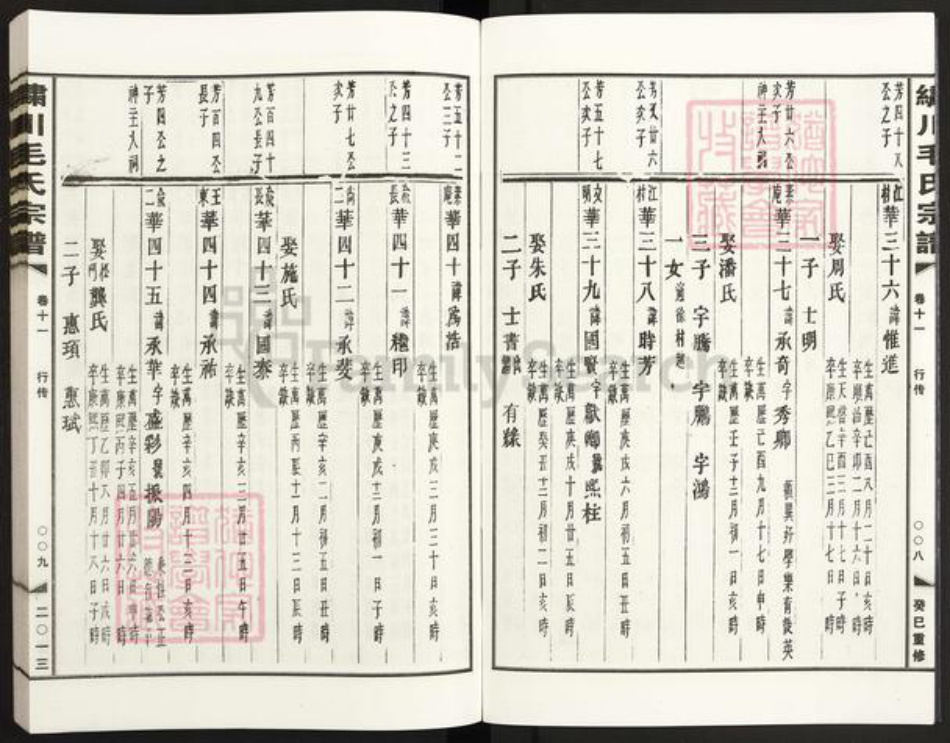 繡川毛氏宗譜 卷十一 行传 〇〇八 癸巳重修
芳四十八公之子
江村華三十六諱惟進
生萬歷己酉八月二十日亥時
卒順治辛卯二月十六日 時
娶周氏
生天啓辛酉三月十七日子時
卒康熙乙巳三月十七日 時
一子 士明
芳廿六公次子
神主入祠
華三十七諱承奇字秀卿
生萬歷己酉九月十七日申時
卒缺
娶潘氏
生萬歷壬子十二月初一日亥時
卒缺
三子 字騰 字鵬 字鴻
一女 適徐村趙
芳又廿六公次子
江村華三十八諱時芳
生萬歷庚戌六月初五日丑時
卒缺
芳五十七公次子
華三十九諱國賢字獻卿號熙柱
生萬歷庚戌十月廿五日辰時
卒缺
娶朱氏
生萬歷癸丑十二月初二日亥時
卒缺
二子 士書 有緣
芳五十二公三子
華四十諱為浩
生萬歷庚戌十二月三十日亥時
卒缺
芳四十三公之子
華四十一諱繼印
生萬歷庚戌十二月初一日子時
卒缺
芳廿七公次子
華四十二諱承斐
生萬歷辛亥二月初五日丑時
卒缺
娶施氏
生萬歷丙辰十一月十三日辰時
卒缺
芳百四十九公長子
華四十三諱國泰
生萬歷辛亥三月廿五日午時
卒缺
芳百四公長子
華四十四諱承祐
生萬歷辛亥四月十三日亥時
卒缺
芳四公之子
神主入祠
華四十五諱承華字盛彩號振陽
生萬歷辛亥五月廿六日申時
卒康熙丙子四月廿六日 時
娶龔氏
生萬歷乙卯八月廿六日戌時
卒康熙丁丑十月十八日子時
二子 惠頊 惠珷
繡川毛氏宗譜 卷十一 行传 〇〇九 二〇一三
FamilySearch